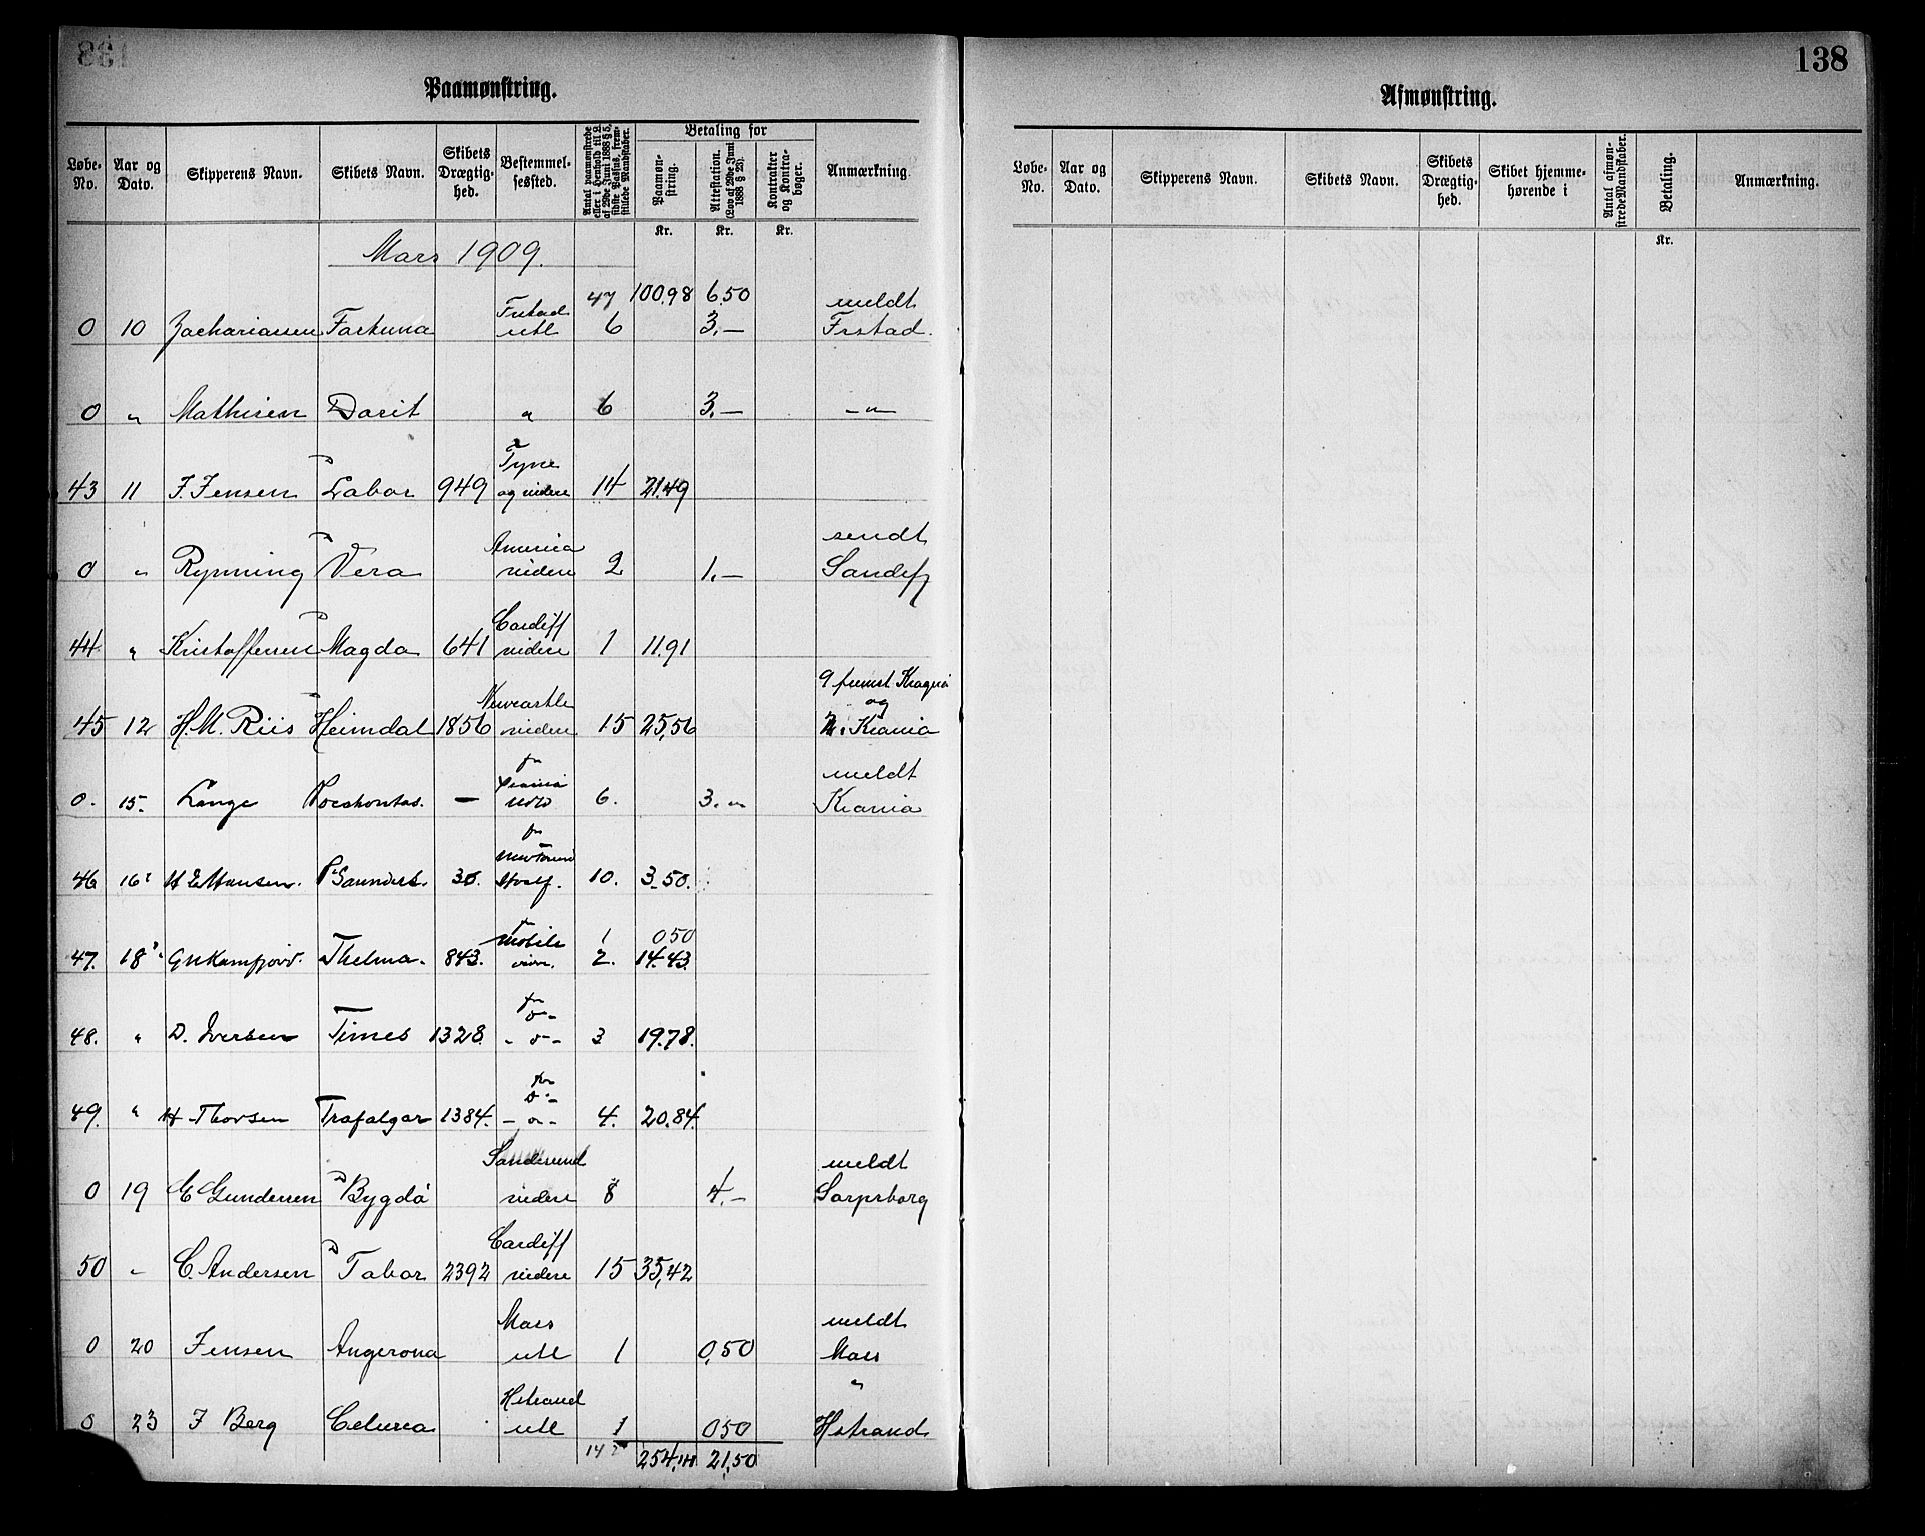 138
Paamønstring.
Løbe-No. Aar og Dato. Skipperens Navn. Skibets Navn. Skibets Drægtig-hed. Bestemmel-sessted. Antal paamønstrede eller i Henhold til L. af 29de Juni 1888 § 5, sidste Passus, frem-stillede Mandskaber. Betaling for Paamøn-string. Attestation. (Lov af 29de Juni 1888 § 23). Kontrakter og Kontra-bøger. Anmærkning.
Kr. Kr. Kr.
Mars 1909.
47 100,98 6,50
0 10 Zachariassen Fortuna Frstad utl 6 3.— meldt Frstad.
0 " Mathisen Dorit " 6 3.— —"—
43 11 F. Jensen D Labor 949 Tyne og videre 14 21.49
0 " Rynning D Vera America videre 2 1.— sendt Sandefj
44 " Kristoffersen D Magda 641 Cardiff videre 1 11.91
45 12 H.M. Riis D Heimdal 1856 Newcastle videre 15 25,56 9 fremst. Kragerø og 2. Krania
0. 15. Lange Pocahontas. — fr Krania 6. 3.— meldt Krania
46 16 H E Hansen. P. Saunders. 30. fr 10. 3.50.
47. 18 Thelma. 843. Mobile 1 2. 050 14.43.
48. " D. Iversen Times 1328. fr —o— 3 19.78.
49. " H Thorsen Trafalgar 1384. fr —o— 4. 20.84.
0 19 C Gundersen D Bygdø Sandesund videre 8 4.— meldt Sarpsborg
50 " C. Andersen D Tabor 2392 Cardiff videre 15 35,42
0 20 Jensen Angerona Moss utl 1 0,50 meldt Moss
0 23 J Berg Celurca Hstrand utl 1 050 " Hstrand
254,14 21,50
138
Afmønstring.
Løbe-No. Aar og Dato. Skipperens Navn. Skibets Navn. Skibets Drægtig-hed. Skibet hjemme-hørende i Antal afmøn-strede Mandskaber. Betaling. Anmærkning.
Kr.